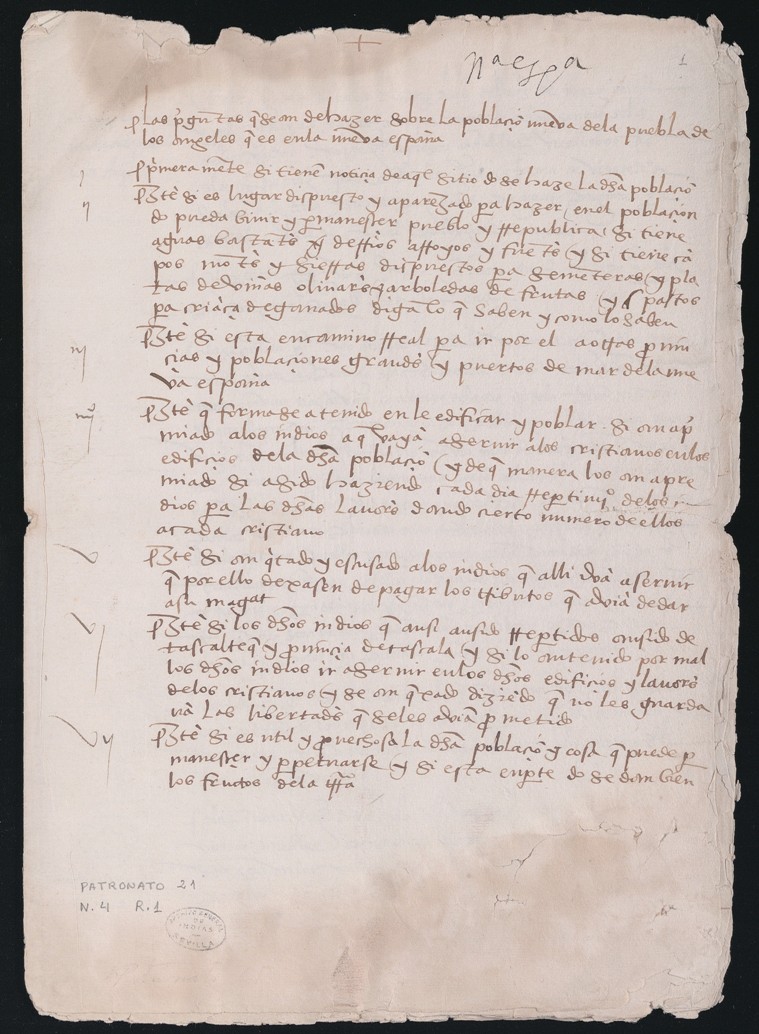 nª espª
1
las pº guntas q̃ se an de hazer sobre la poblaçiõ nueva de la puebla de
los angeles que es en la nueva españa
j pºmeramẽte si tienẽ notiçia de aq̃l sitio do se haze la dhã poblaçiõ
ij Itẽ si es lugar dispuesto y aparejado pª hazer en el poblaçion
do pueda biuir y pmanesçer pueblo y rrepublica / si tiene
aguas bastãtẽs y de rrios arroyos y fuẽtẽs / y si tiene cã
pos mõtẽs y tierras dispuestos pª sementeras / y plã
tas de viñas olivarẽs y arboledas de frutas / y pastos
pª criãça de ganados digã lo q̃ saben y como lo saben
iij Itẽ si esta en camino rreal pª ir por el a otras proujn
çias y poblaçiones grandẽs y puertos de mar de la nue
va españa
iiijº Itẽ que forma se a tenido en le edificar y poblar . si an apº
miado a los indios a q̃ vayã a seruir a los cristianos en los
edifiçios de la dhã poblaçiõ / y de que manera los an apre
miado si a sido haziendo cada dia rrepartimiº de los in
dios pª las dhãs lauorẽs dando çierto numero de ellos
a cada cristiano
v Itẽ si an q̃tado y escusado a los indios q̃ alli ivã a seruir
q̃ por ello dexasen de pagar los tributos q̃ aviã de dar
a su magat
vj Itẽ si los dhõs indios q̃ ansi an sido rrepartidos an sido de
tascalteq̃ y prouinçia de tascala / y si lo an tenido por mal
los dhõs indios ir a seruir en los dhõs edifiçios y lauorẽs
de los cristianos / y se an q̃xado diziẽdo que no les guarda
uã las libertadẽs q̃ se les aviã prometido
vij Itẽ si es util y prouechosa la dhã poblaçiõ y cosa que puede p
manesçer y perpetuarse / y si esta en pte do se dan bien
los frutos de la trrª
PATRONATO 21
N. 4 R. 1
ARCHIVO GENERAL
DE
INDIAS
SEVILLA